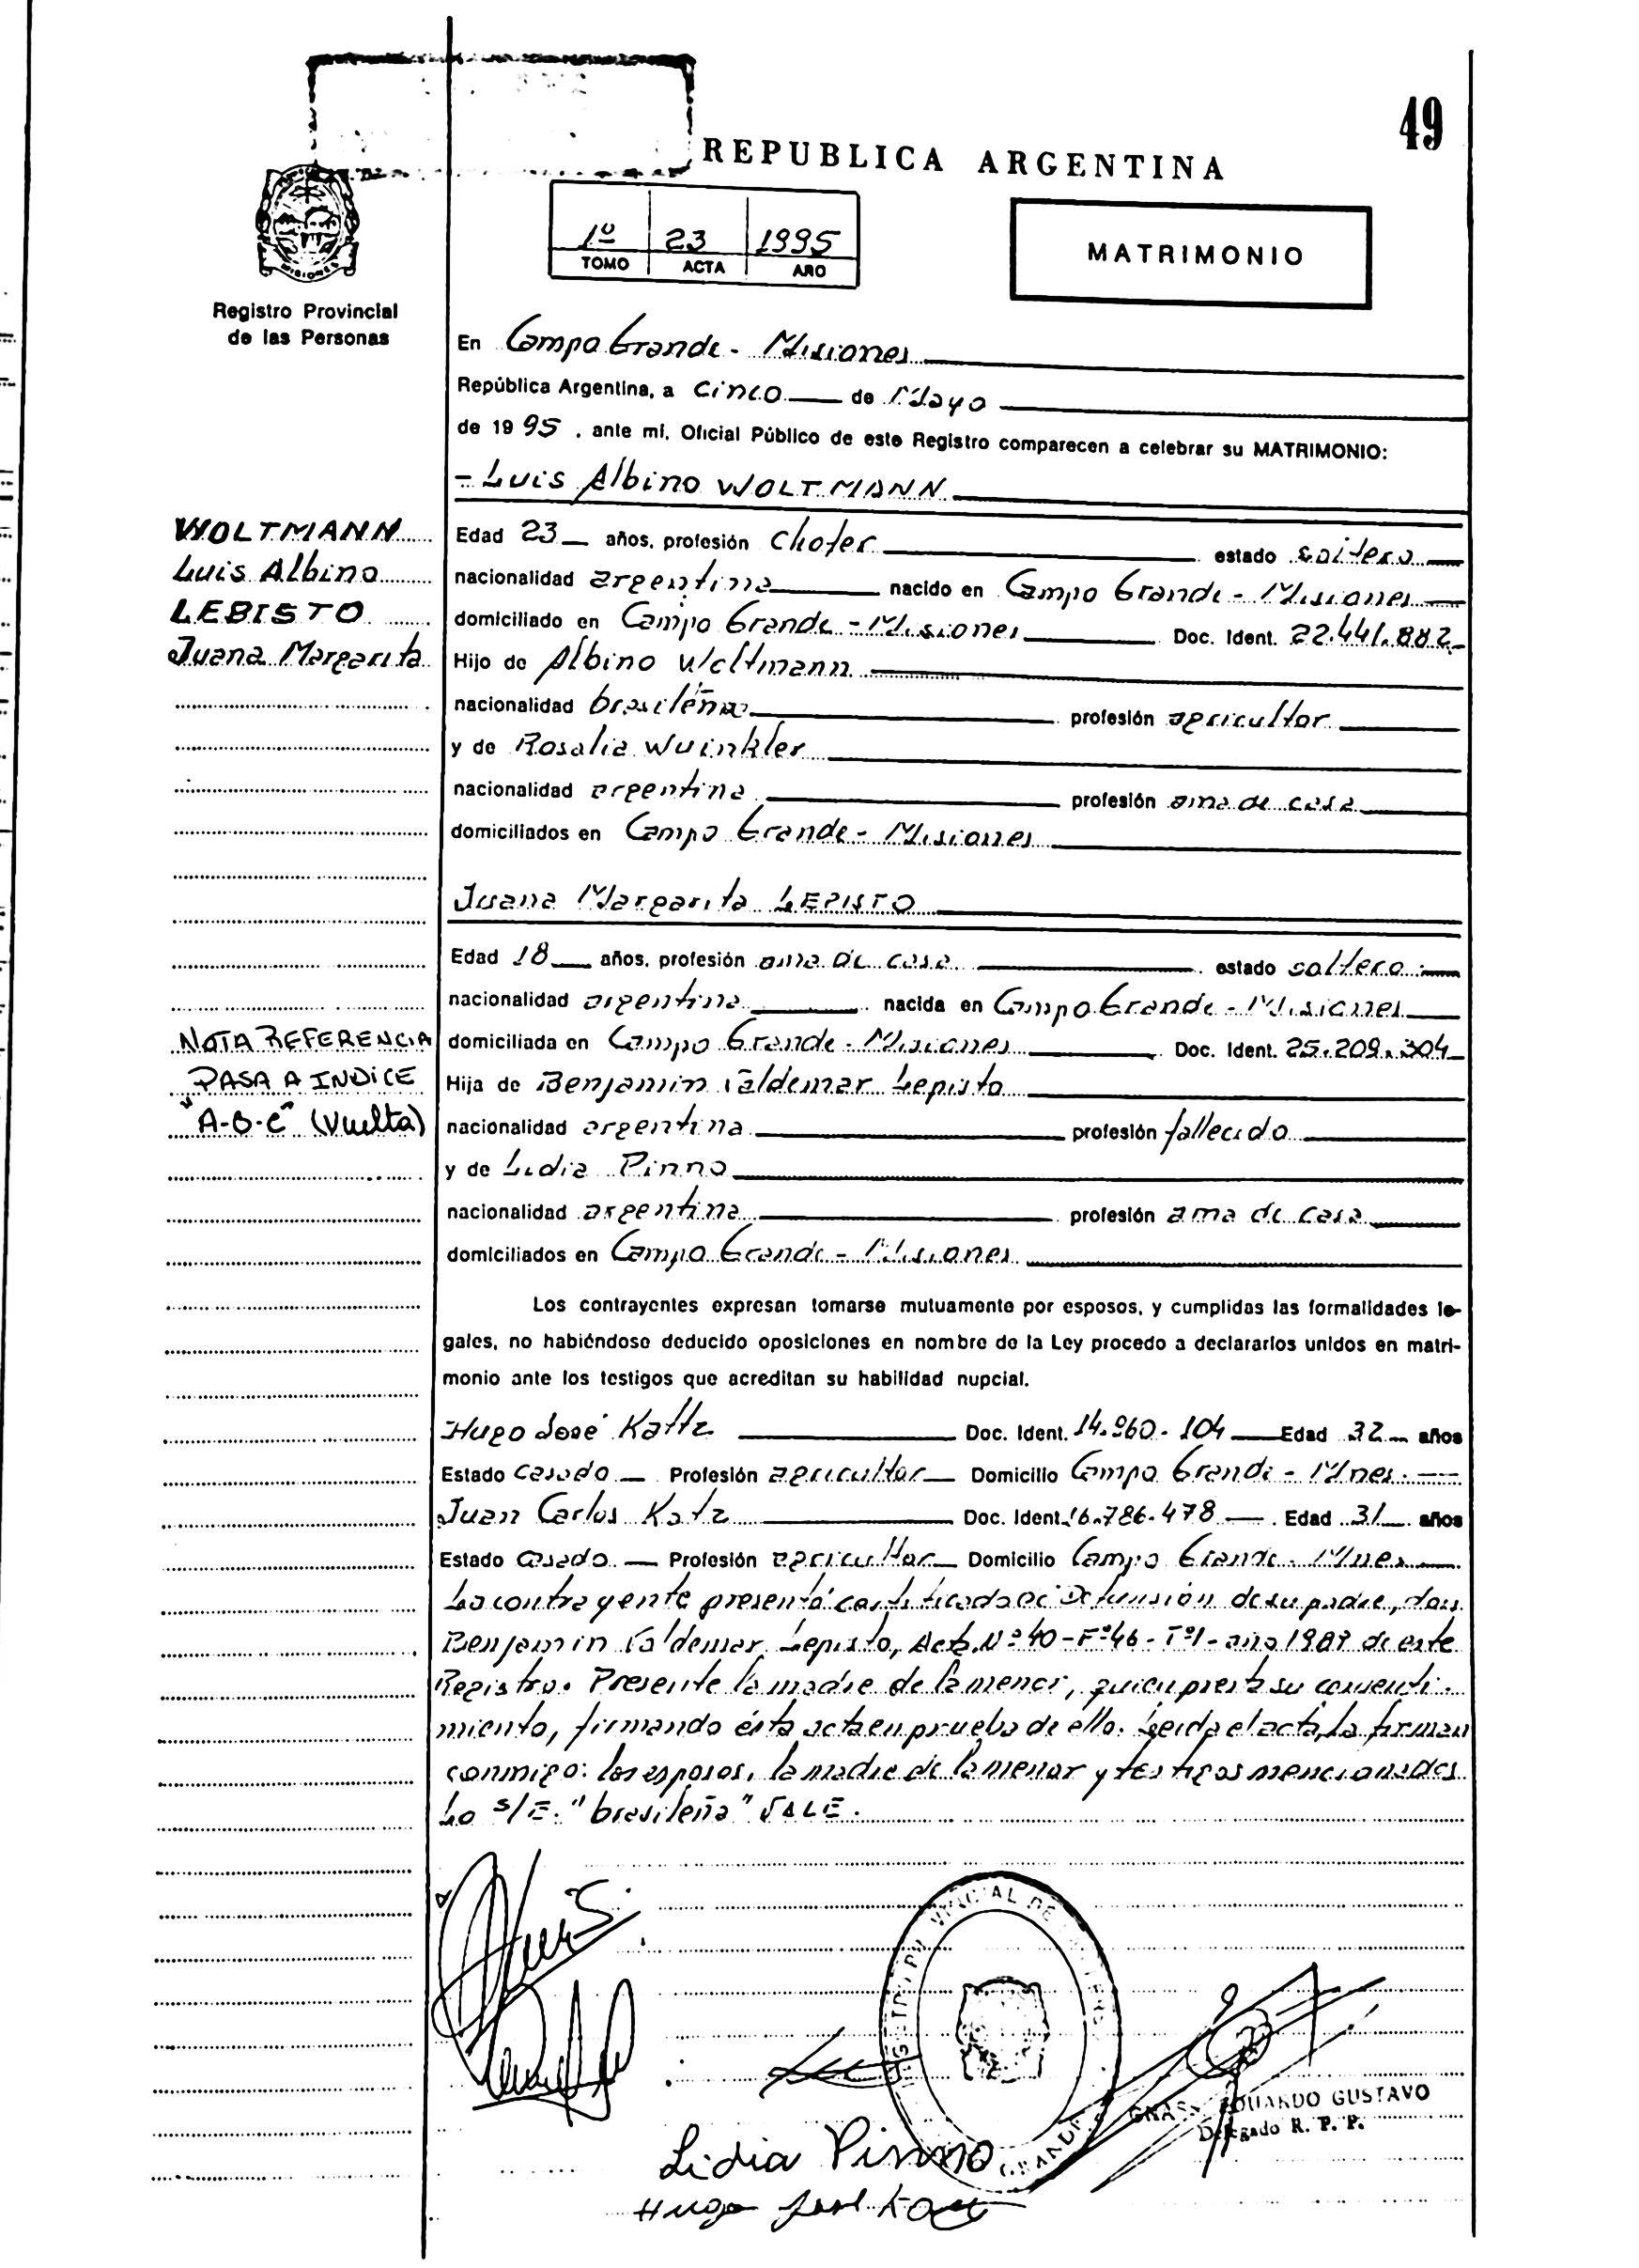 49
REPUBLICA ARGENTINA
1º 23 1995
TOMO ACTA AÑO
MATRIMONIO
MISIONES
Registro Provincial
de las Personas
En Campo Grande - Misiones
República Argentina, a cinco de Mayo
de 1995, ante mí, Oficial Público de este Registro comparecen a celebrar su MATRIMONIO:
- Luis Albino WOLTMANN
WOLTMANN
Luis Albino
LEBISTO
Juana Margarita
Edad 23 años, profesión chofer estado soltero
nacionalidad argentina nacido en Campo Grande - Misiones
domiciliado en Campo Grande - Misiones Doc. Ident. 22.441.882
Hijo de Albino Woltmann
nacionalidad brasileña profesión agricultor
y de Rosalia Wuinkler
nacionalidad argentina profesión ama de casa
domiciliados en Campo Grande - Misiones
Juana Margarita LEPISTO
Edad 18 años, profesión ama de casa estado soltera
nacionalidad argentina nacida en Campo Grande - Misiones
NOTA REFERENCIA
PASA A INDICE
"A-B-C" (Vuelta)
domiciliada en Campo Grande - Misiones Doc. Ident. 25.209.304
Hija de Benjamin Valdemar Lepisto
nacionalidad argentina profesión fallecido
y de Lidia Pinno
nacionalidad argentina profesión ama de casa
domiciliados en Campo Grande - Misiones
Los contrayentes expresan tomarse mutuamente por esposos, y cumplidas las formalidades le-
gales, no habiéndose deducido oposiciones en nombre de la Ley procedo a declararlos unidos en matri-
monio ante los testigos que acreditan su habilidad nupcial.
Hugo José Kattz Doc. Ident. 14.960.104 Edad 32 años
Estado casado Profesión agricultor Domicilio Campo Grande - Mnes.
Juan Carlos Katz Doc. Ident. 16.786.478 Edad 31 años
Estado casado Profesión agricultor Domicilio Campo Grande - Mnes
La contrayente presentó certificado de Defunsión de su padre, don
Benjamin Valdemar Lepisto, Acta Nº 40 - Fº 46 - Tº 1 - año 1987 de este
Registro. Presente la madre de la menor, quien presta su consenti-
miento, firmando ésta acta en prueba de ello. Leída el acta, la firman
conmigo: los esposos, la madre de la menor y testigos mencionados.
Lo s/E: "brasileña" VALE.
EDUARDO GUSTAVO
Delegado R. P. P.
Lidia Pinno
GRANDE
Hugo José